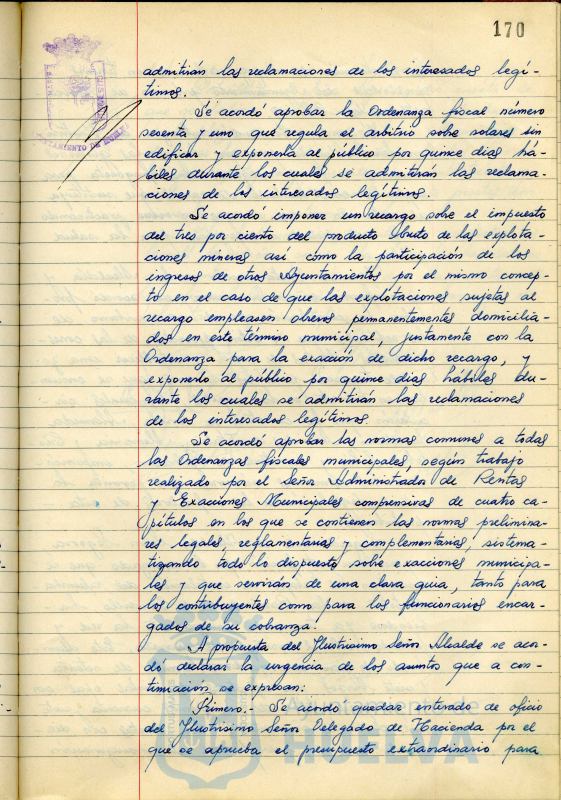 170
admitirán las reclamaciones de los interesados legí-
timos.
Se acordó aprobar la Ordenanza fiscal número
sesenta y uno que regula el arbitrio sobre solares sin
edificar y exponerla al público por quince dias há-
biles durante los cuales se admitirán las reclama-
ciones de los interesados legítimos.
Se acordó imponer un recargo sobre el impuesto
del tres por ciento del producto bruto de las explota-
ciones mineras asi como la participación de los
ingresos de otros Ayuntamientos por el mismo concep-
to en el caso de que las explotaciones sujetas al
recargo empleasen obreros permanentementes domicilia-
dos en este término municipal, juntamente con la
Ordenanza para la exacción de dicho recargo, y
exponerlo al público por quince dias hábiles du-
rante los cuales se admitirán las reclamaciones
de los interesados legítimos.
Se acordó aprobar las normas comunes a todas
las Ordenanzas fiscales municipales, según trabajo
realizado por el Señor Administrador de Rentas
y Exacciones Municipales comprensivas de cuatro ca-
pítulos en los que se contienen las normas prelimina-
res legales, reglamentarias y complementarias, sistema-
tizando todo lo dispuesto sobre exacciones municipa-
les y que servirán de una clara guia, tanto para
los contribuyentes como para los funcionarios encar-
gados de su cobranza.
A propuesta del Ilustrisimo Señor Alcalde se acor-
dó declarar la urgencia de los asuntos que a con-
tinuación se expresan:
Primero.- Se acordó quedar enterado de oficio
del Ilustrisimo Señor Delegado de Hacienda por el
que se aprueba el presupuesto extraordinario para
AYUNTAMIENTO DE HUELVA
HUELVA